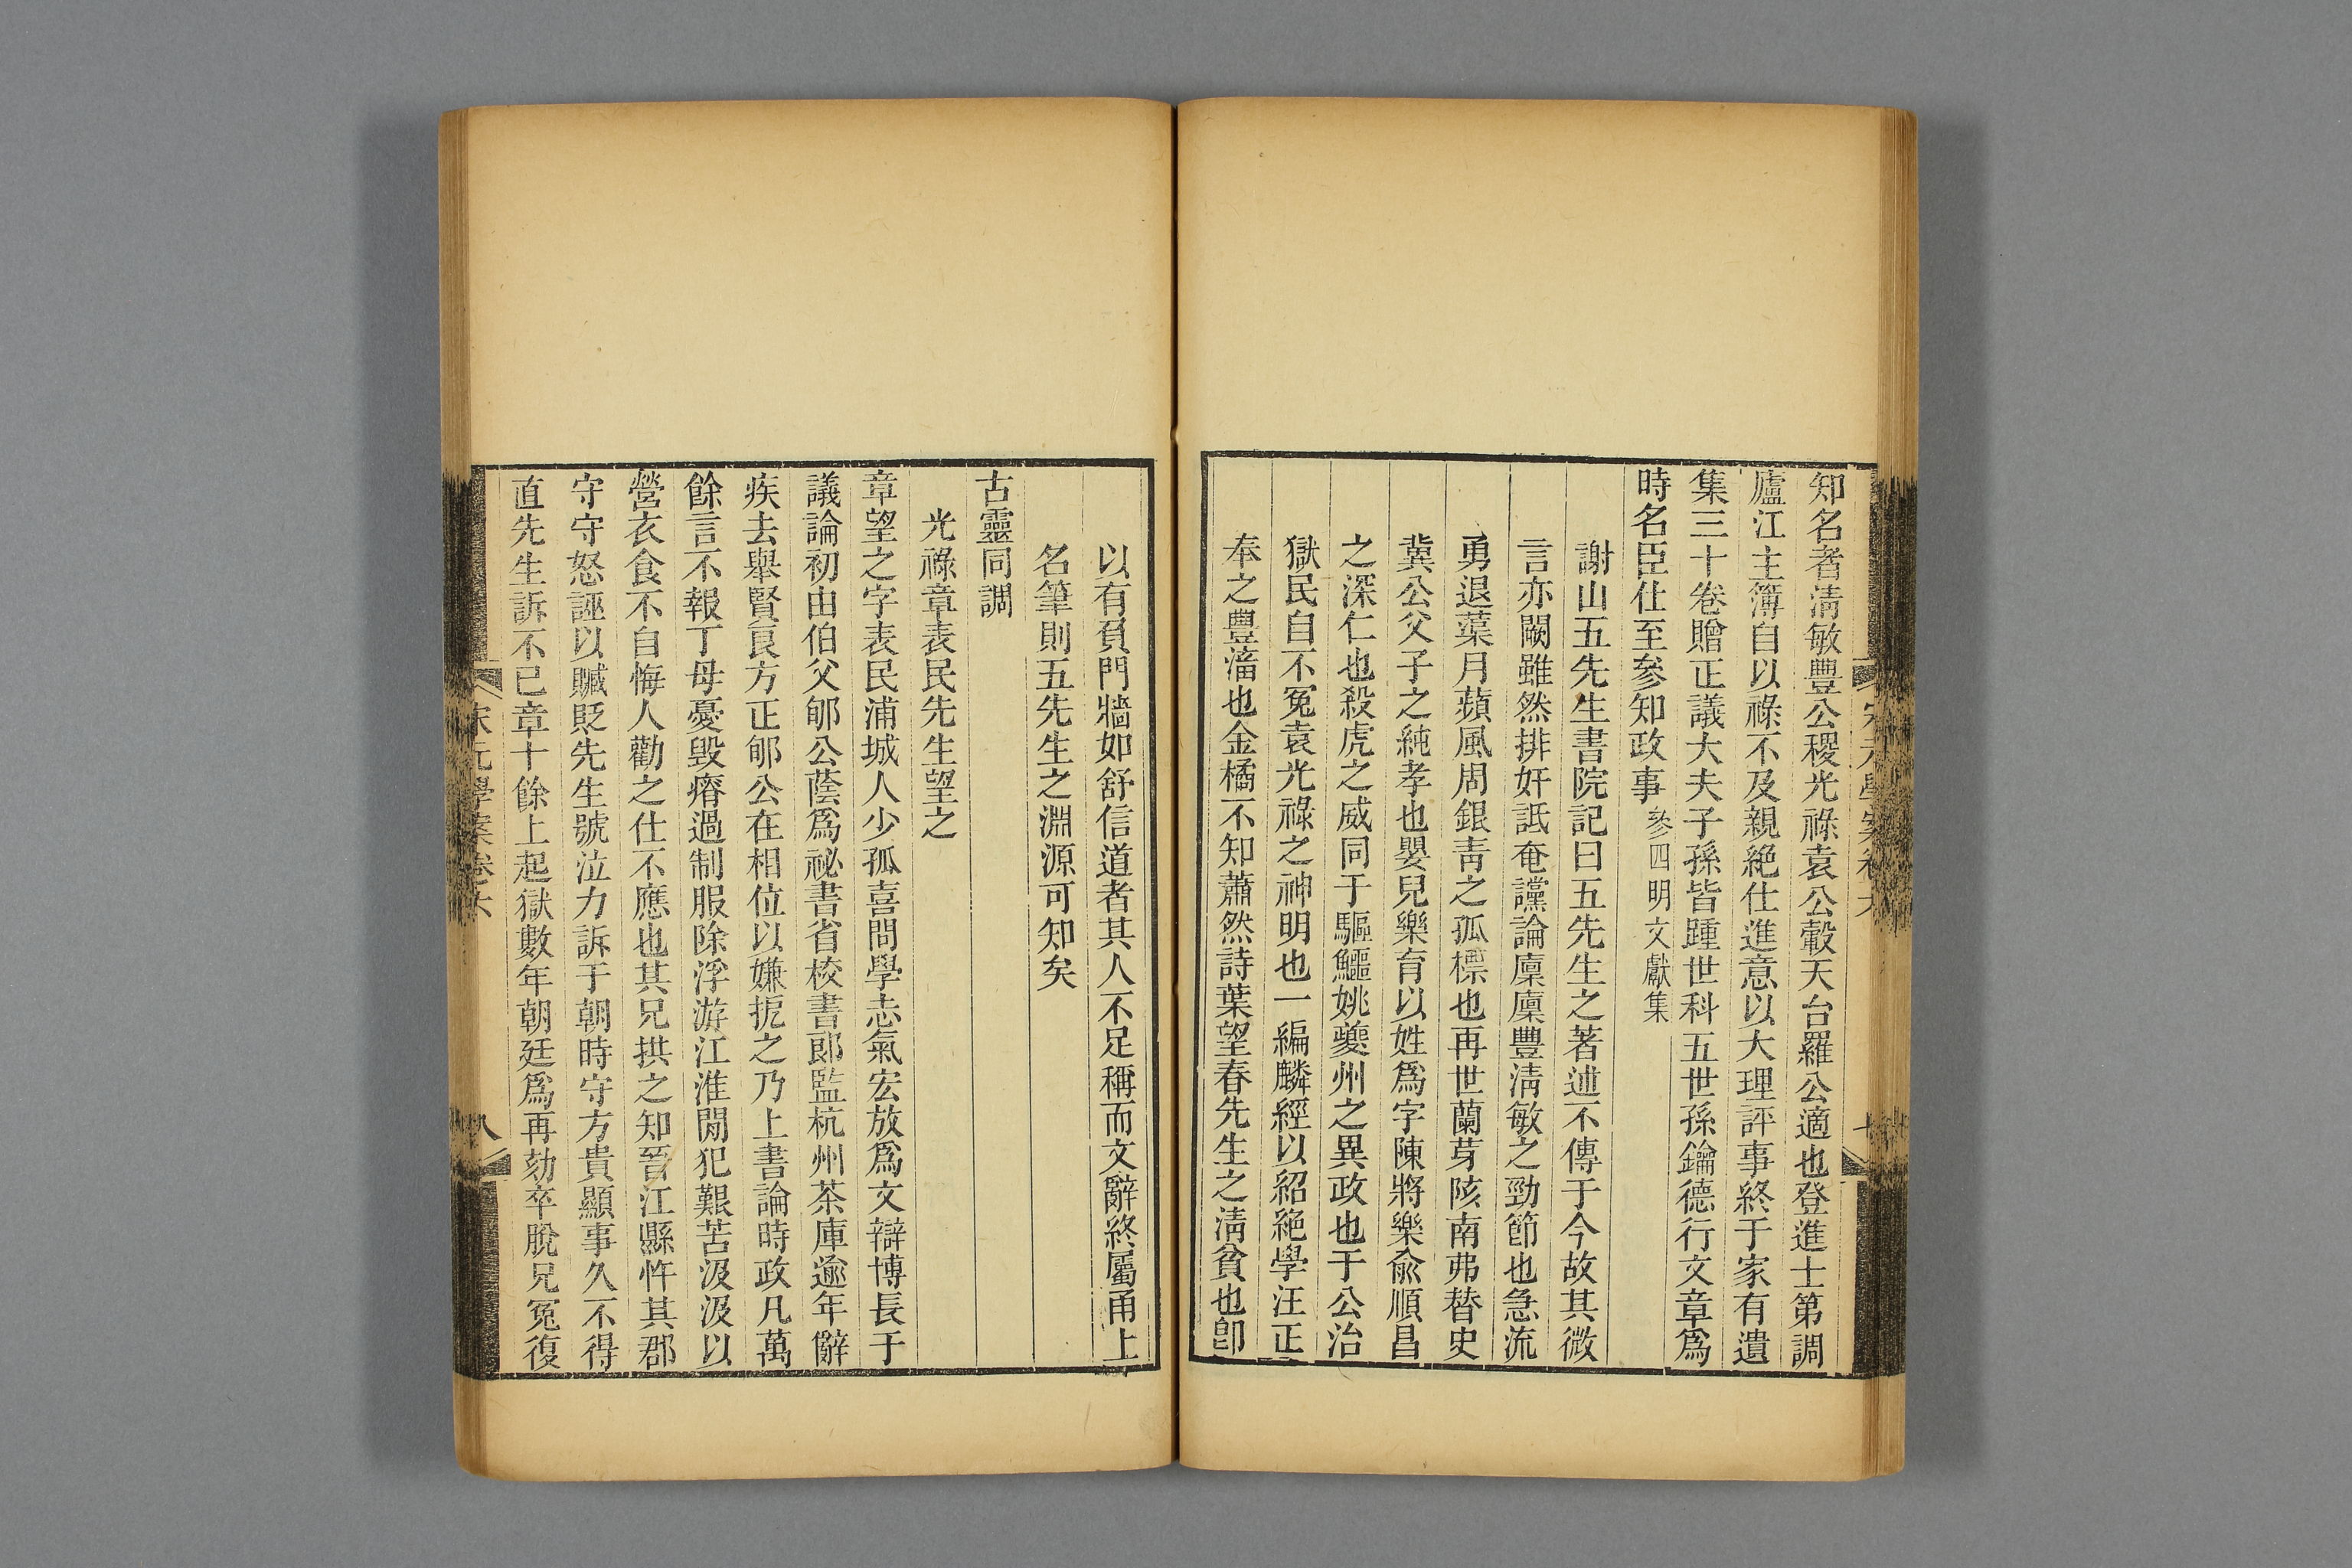 知名者淸敏豐公稷光祿袁公轂天台羅公適也登進士第調
廬江主簿自以祿不及親絶仕進意以大理評事終于家有遺
集三十卷贈正議大夫子孫皆踵世科五世孫鑰德行文章爲
時名臣仕至參知政事參四明文獻集
謝山五先生書院記曰五先生之著述不傳于今故其微
言亦闕雖然排奸詆奄讜論廩廩豐淸敏之勁節也急流
勇退葉月蘋風周銀靑之孤標也再世蘭芽陔南弗替史
冀公父子之純孝也嬰兒樂育以姓爲字陳將樂兪順昌
之深仁也殺虎之威同于驅鱷姚夔州之異政也于公治
獄民自不冤袁光祿之神明也一編麟經以紹絶學汪正
奉之豐蓄也金橘不知蕭然詩葉望春先生之淸貧也卽
以有負門牆如舒信道者其人不足稱而文辭終屬甬上
名筆則五先生之淵源可知矣
古靈同調
光祿章表民先生望之
章望之字表民浦城人少孤喜問學志氣宏放爲文辯博長于
議論初由伯父郇公蔭爲祕書省校書郎監杭州茶庫逾年辭
疾去舉賢良方正郇公在相位以嫌扼之乃上書論時政凡萬
餘言不報丁母憂毀瘠過制服除浮游江淮閒犯艱苦汲汲以
營衣食不自悔人勸之仕不應也其兄拱之知晉江縣忤其郡
守守怒誣以贓貶先生號泣力訴于朝時守方貴顯事久不得
直先生訴不已章十餘上起獄數年朝廷爲再劾卒脫兄冤復
宋元學案卷六
八